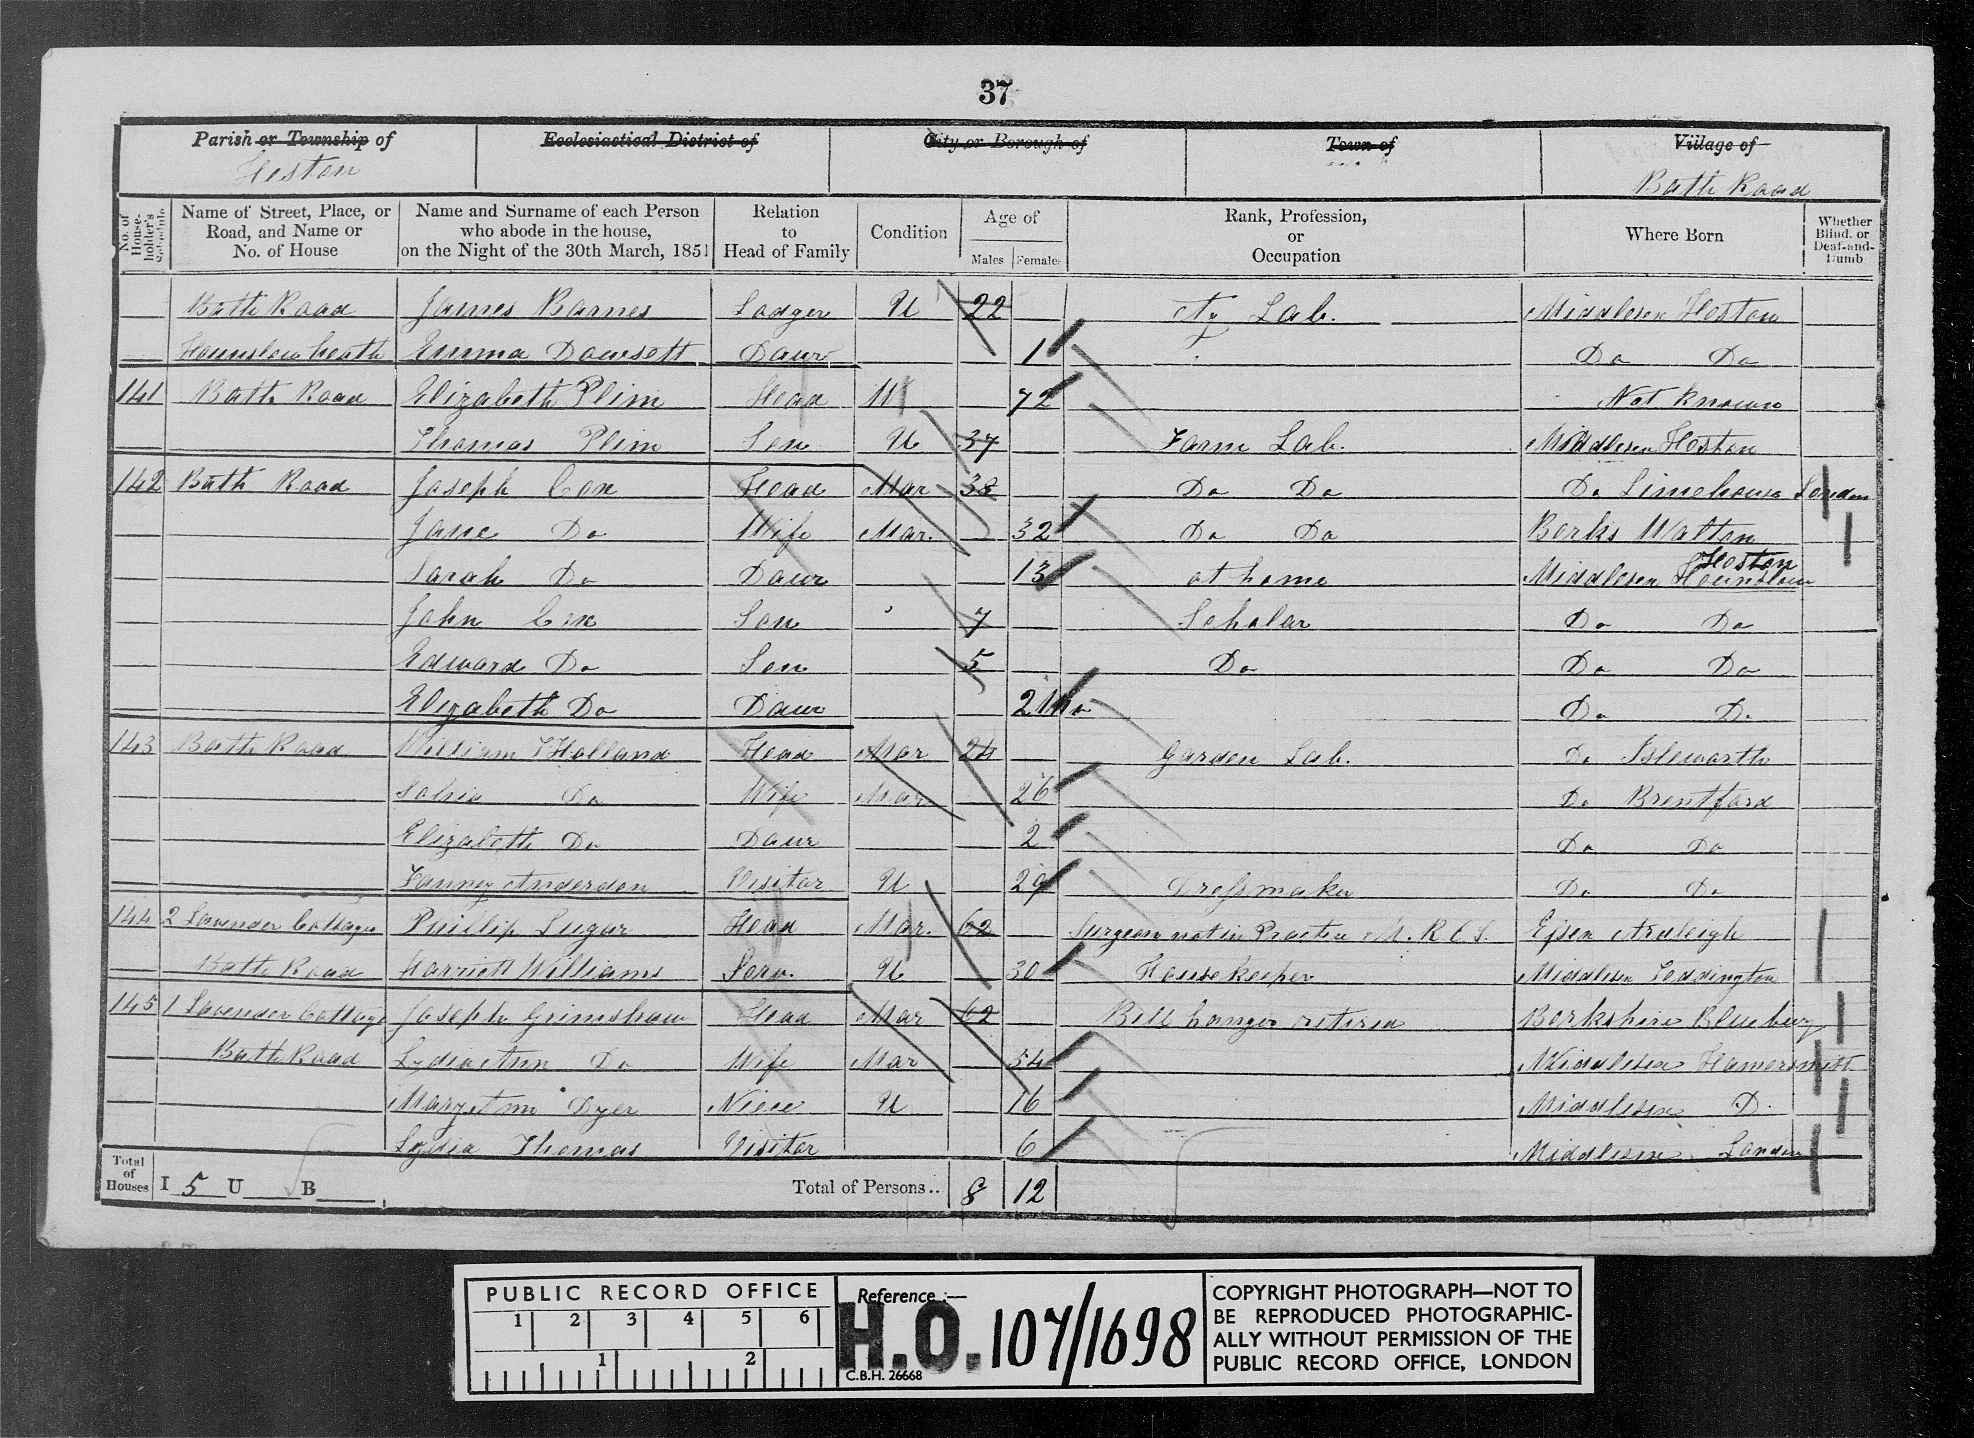 37
Parish or Township of Ecclesiastical District of City or Borough of Town of Village of
Heston Bath Road
No. of House-holder's Schedule Name of Street, Place, or Road, and Name or No. of House Name and Surname of each Person who abode in the house, on the Night of the 30th March, 1851 Relation to Head of Family Condition Age of Males Females Rank, Profession, or Occupation Where Born Whether Blind, or Deaf-and-Dumb
Bath Road James Barnes Lodger U 22 Lab. Middlesex Heston
Hounslow heath Emma Dowsett Daur 1 Do Do
141 Bath Road Elizabeth Plim Head 72 Not Known
Thomas Plim Son U 37 Farm Lab. Middlesex Heston
142 Bath Road Joseph Cox Head Mar 38 Do Do Do Limehouse London
Jane Do Wife Mar. 32 Do Do Berks Walton
Sarah Do Daur 13 at home Middlesex Hounslow Heston
John Cox Son 7 Scholar Do Do
Edward Do Son 5 Do Do Do
Elizabeth Do Daur 2 Mo Do Do
143 Bath Road William Holland Head Mar 24 Garden Lab. Do Isleworth
Do Wife Mar 26 Do Brentford
Elizabeth Do Daur 2 Do Do
Fanney Anderdon Visitor U 29 Dressmaker Do Do
144 2 Lavender Cottages Phillip Sugar Head Mar. 62 Surgeon not in Practice M.R.C.S. Essex
Bath Road Harriett Williams Serv. U 30 Housekeeper Middlesex Teddington
145 1 Lavender Cottage Joseph Grimshaw Head Mar 62 Bell hanger retired Berkshire Bluebury
Bath Road Lydia Ann Do Wife Mar 54 Middlesex Hamersmith
Mary Ann Dyer Niece U 16 Middlesex D.
Lydia Thomas Visitor 6 Middlesex London
Total of Houses I 5 U B Total of Persons.. 8 12
PUBLIC RECORD OFFICE
1 2 3 4 5 6
1 2
Reference :—
H.O. 107/1698
C.B.H. 26668
COPYRIGHT PHOTOGRAPH—NOT TO
BE REPRODUCED PHOTOGRAPHIC-
ALLY WITHOUT PERMISSION OF THE
PUBLIC RECORD OFFICE, LONDON